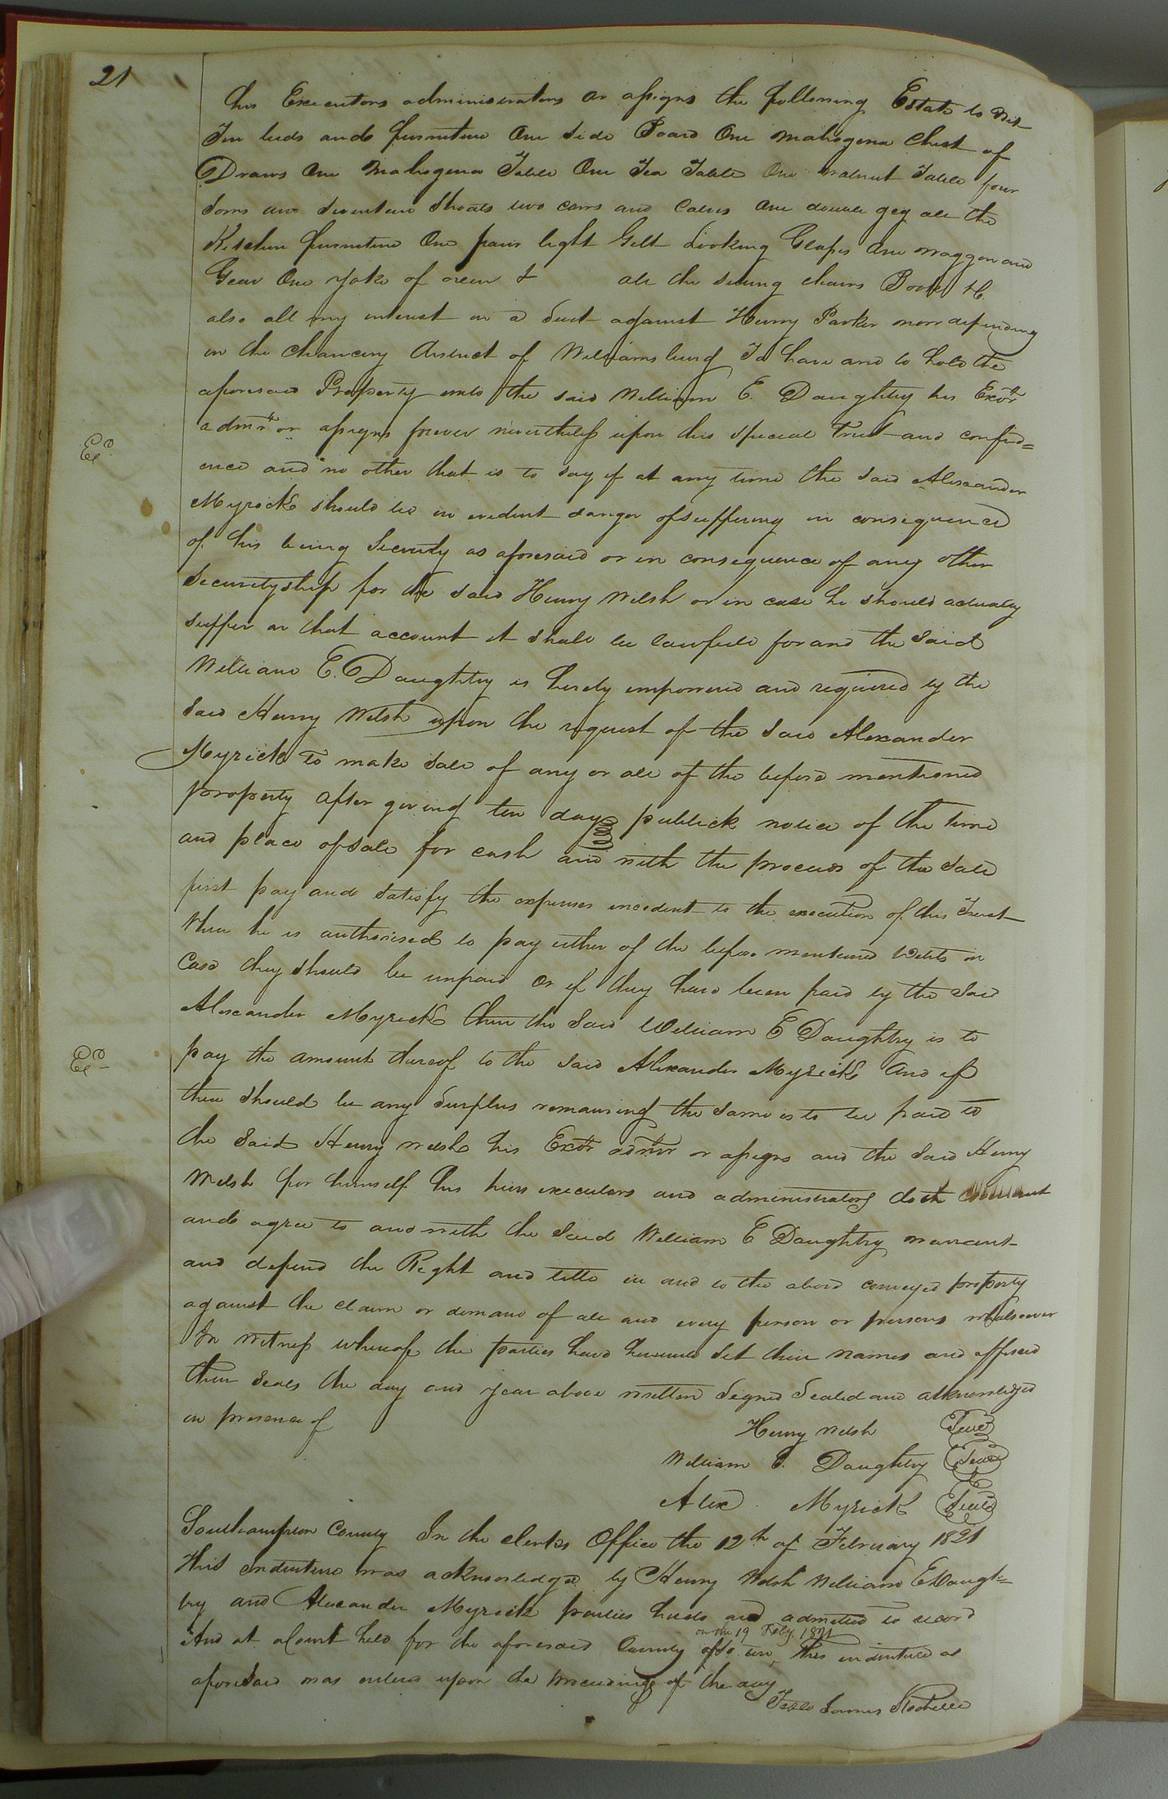 21
his Executors administrators or assigns the following Estate to wit
Ten beds and furniture One Side Board One Mahogena Chest of
Draws One Mahogena Table One Tea Table One walnut Table four
Sows and Seventeen Shoats two cows and Calves One double gig all the
Kitchen furniture One pair light Gilt Looking Glasses One waggon and
Gear One yoke of oxen & all the setting chairs Books &c
also all my interest in a Suit against Henry Parker now depending
in the Chancery district of Williamsburg To have and to hold the
aforesaid Property unto the said William E. Daughtry his Exors
admrs or assigns forever nevertheless upon this special trust and confid=
ence and no other that is to say if at any time the said Alexander
Myrick should be in evident danger of suffering in consequence
of his being Security as aforesaid or in consequence of any other
Securityship for the said Henry Welsh or in case he should actualy
suffer on that account it shall be lawfull for and the Said
William E. Daughtry is hereby impowered and required by the
said Henry Welsh upon the request of the said Alexander
Myrick to make sale of any or all of the before mentioned
property after giving ten days publick notice of the time
and place of sale for cash and with the proceeds of the sale
first pay and satisfy the expenses incedent to the execution of this Trust
then he is authorised to pay either of the before mentioned Debts in
case they should be unpaid or if they have been paid by the said
Alexander Myrick then the said William E Daughtry is to
pay the amount thereof to the said Alexander Myrick And if
there should be any surplus remaining the same is to be paid to
the Said Henry Welsh his Exors admrs or assigns and the said Henry
Welsh for himself his heirs executors and administrators doth covenant
and agree to and with the said William E Daughtry warrant
and defend the Right and title in and to the above conveyed property
against the claim or demand of all and every person or persons whatsoever
In witness whereof the parties have hereunto set their names and affixed
their seals the day and year above written Signed Sealed and acknowledged
in presence of
Henry Welsh Seal
William E. Daughtry Seal
Alex. Myrick Seal
Southampton County In the clerks Office the 12th of February 1821
This indenture was acknowledged by Henry Welsh William E Daught=
ry and Alexander Myrick parties hereto and admitted to record
on the 19 Feby 1821
And at a Court held for the aforesaid County this indenture as
aforesaid was entered upon the proceedings of the day
Teste James Rochelle